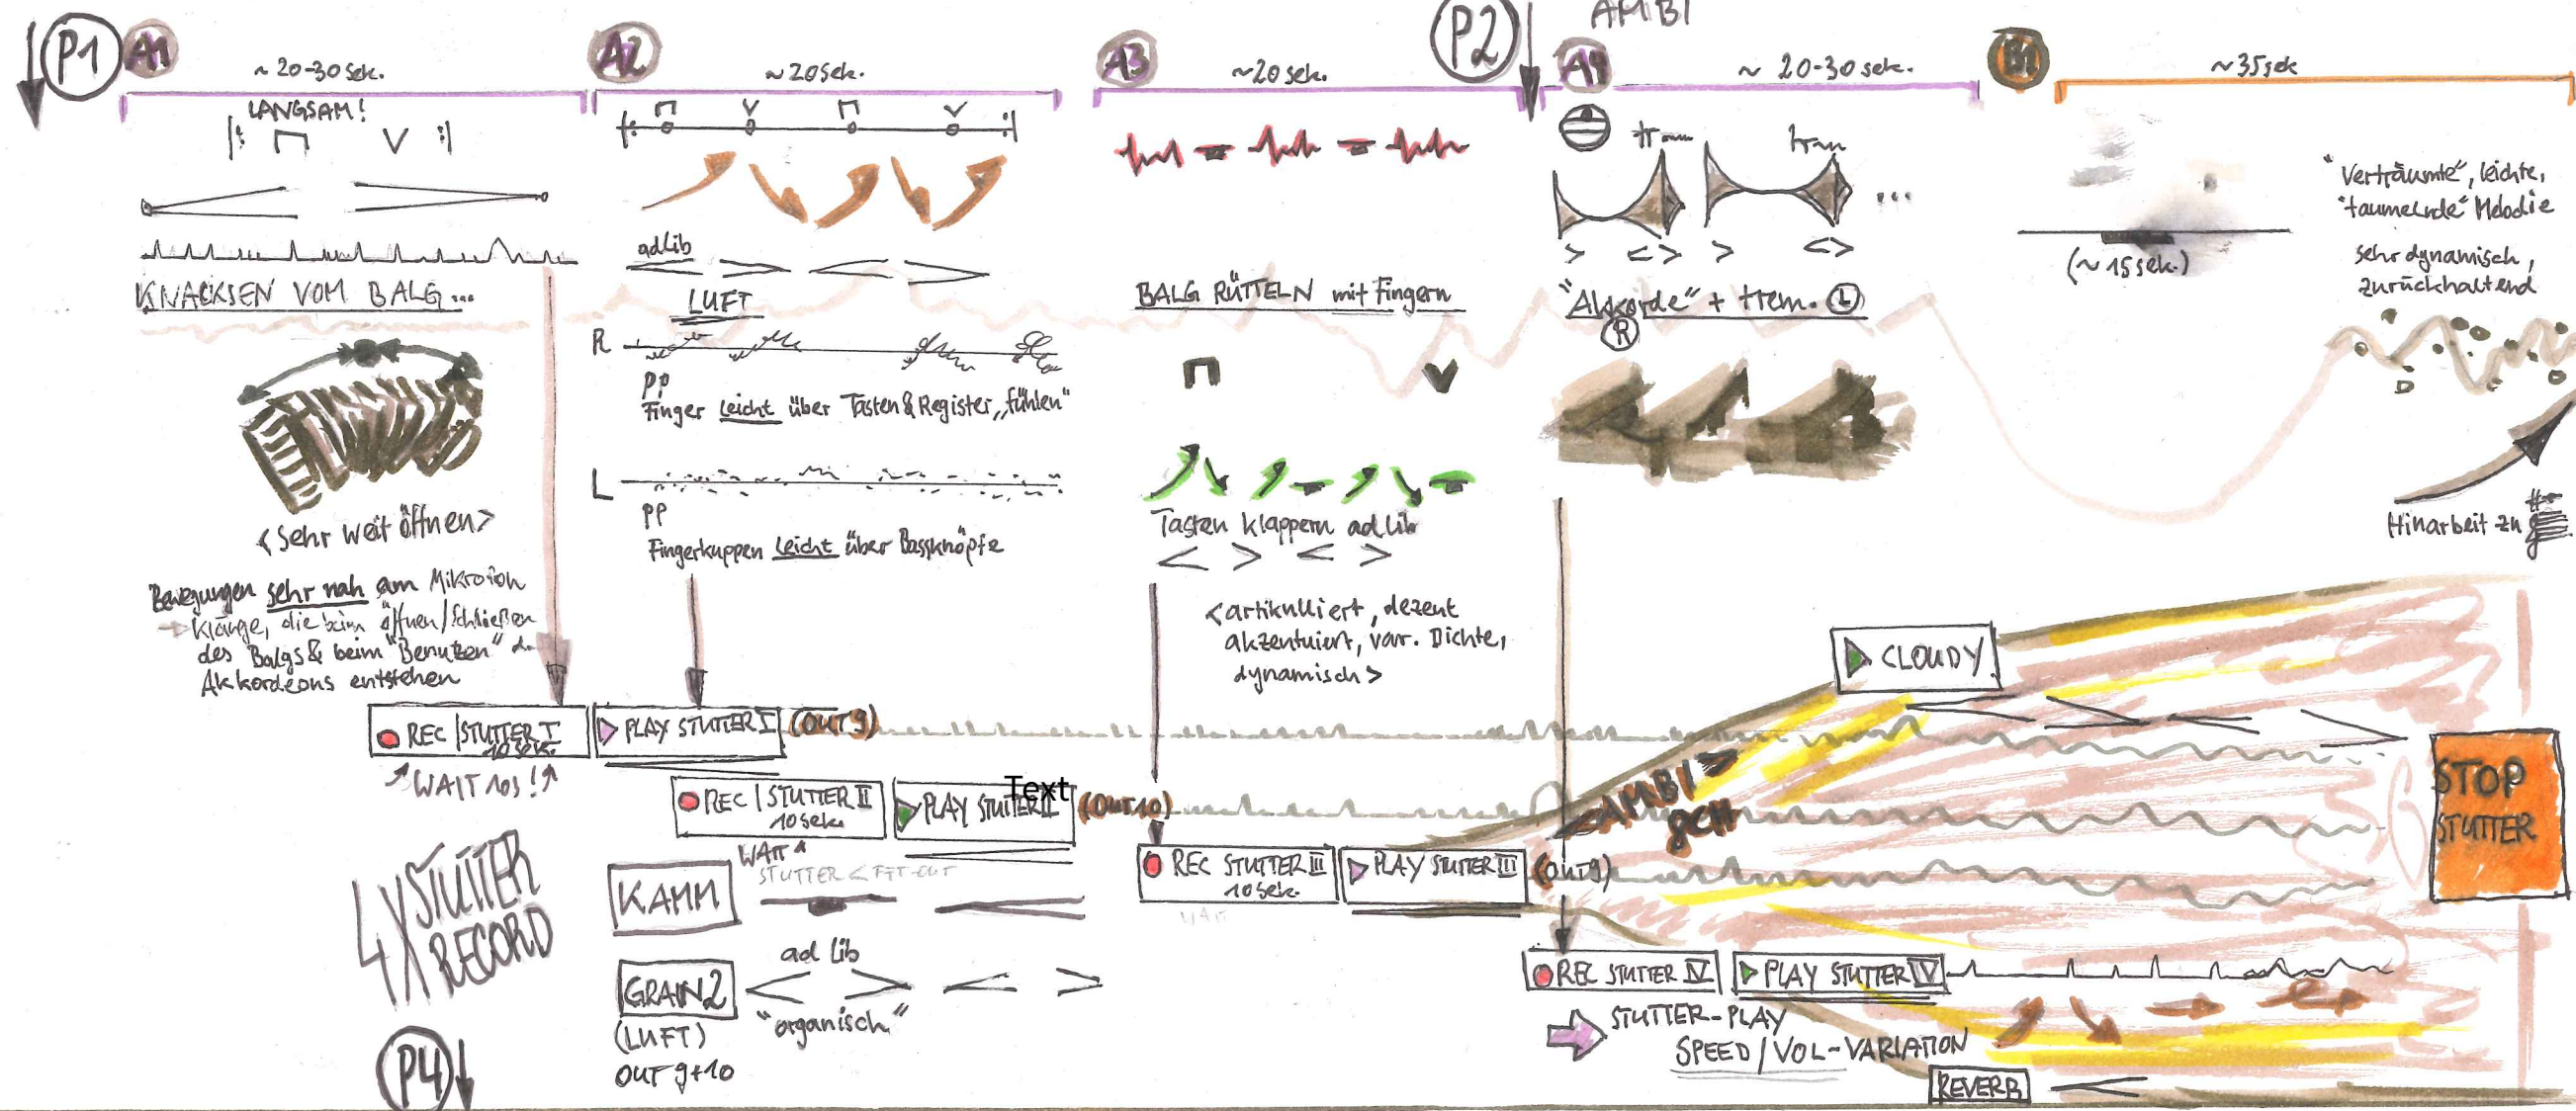 P1
A1
~ 20-30 sek.
LANGSAM!
KNACKSEN VOM BALG...
<Sehr weit öffnen>
Bewegungen sehr nah am Mikrofon
→ Klänge, die beim öffnen/schließen
des Balgs & beim "Benutzen" d.
Akkordeons entstehen
REC | STUTTER I
10 sek.
WAIT 10s!
4X STUTTER
RECORD
P4
A2
~ 20 sek.
ad Lib
LUFT
R
pp
Finger leicht über Tasten & Register „fühlen"
L
pp
Fingerkuppen leicht über Bassknöpfe
PLAY STUTTER I (OUT 9)
REC | STUTTER II
10 sek.
PLAY STUTTER II (OUT 10)
Text
WAIT
KAMM
GRAIN2
(LUFT)
OUT 9+10
ad lib
"organisch"
A3
~20 sek.
BALG RÜTTELN mit Fingern
Tasten klappern ad lib
<artikuliert, dezent
akzentuiert, var. Dichte,
dynamisch>
REC STUTTER III
10 sek.
WAIT
PLAY STUTTER III (OUT9)
P2
AMBI
A4
~ 20-30 sek.
"Akkorde" + trem. L
R
AMBI
8CH
CLOUDY
REC STUTTER IV
PLAY STUTTER IV
STUTTER-PLAY
SPEED/VOL-VARIATION
REVERB
B1
~35sek
(~15sek.)
"Verträumte", leichte,
"taumelnde" Melodie
sehr dynamisch,
zurückhaltend
Hinarbeit zu
STOP
STUTTER